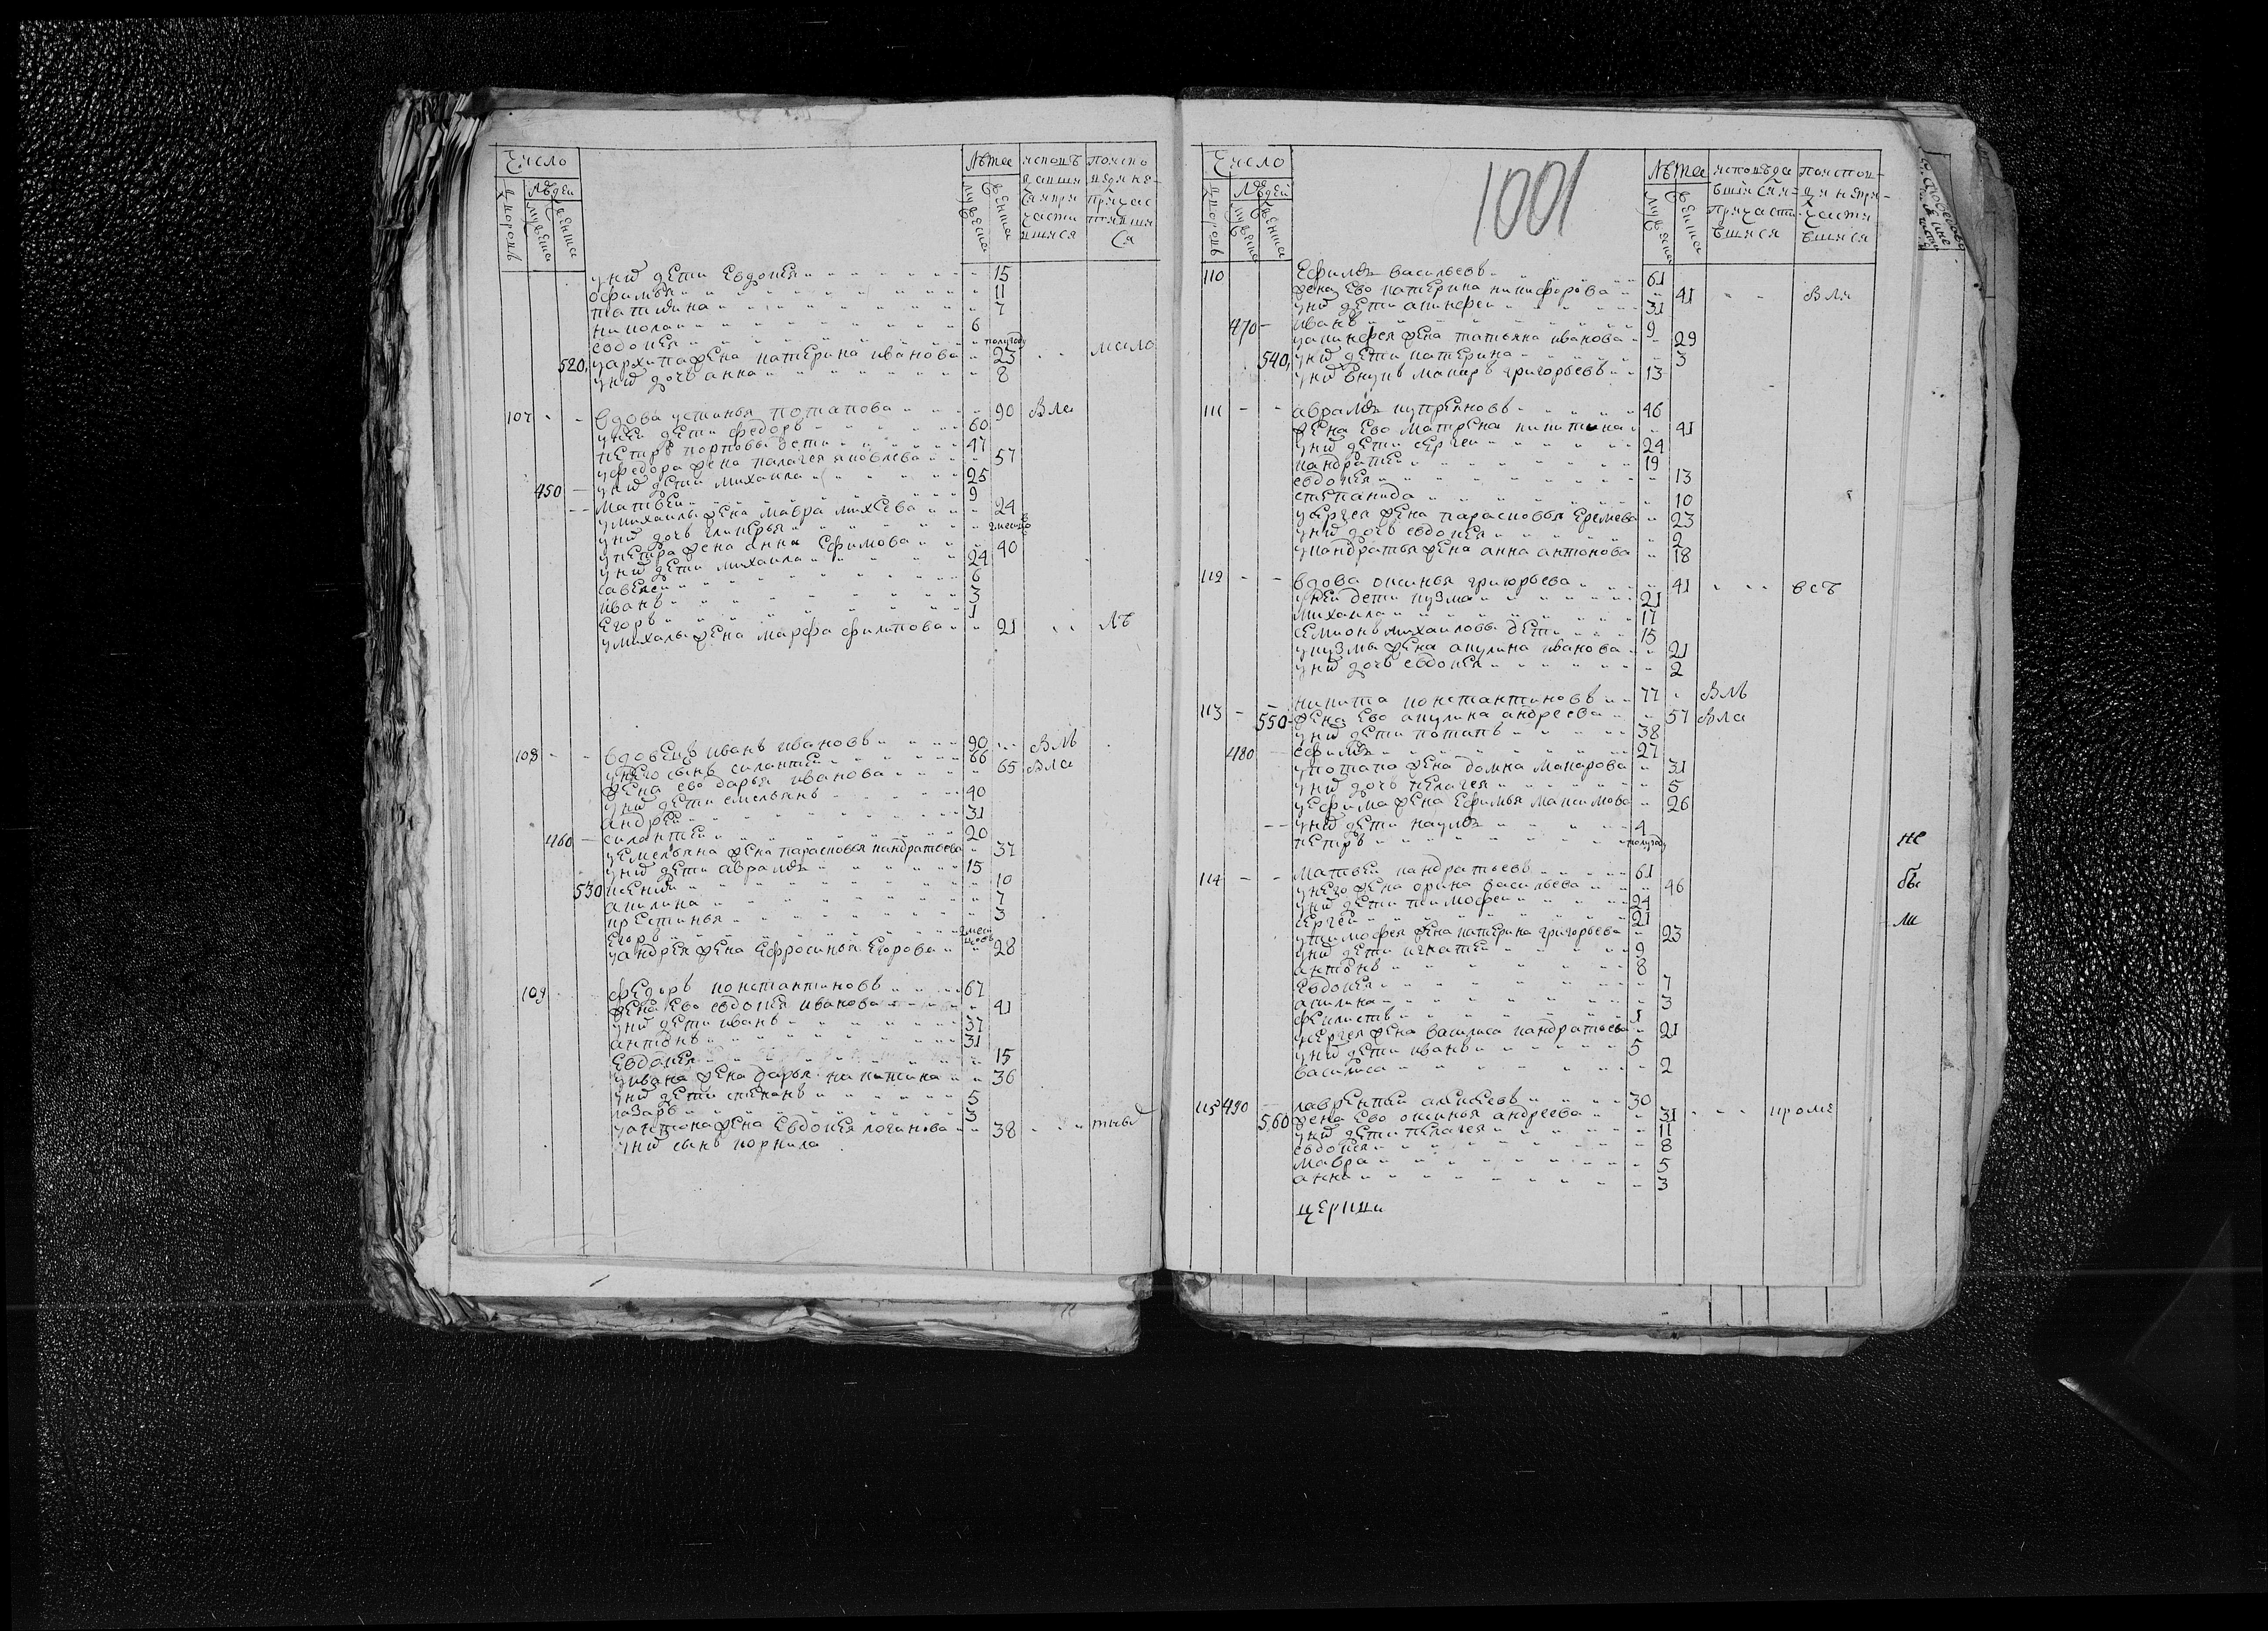 Число
Людей
Лѣта
дворовъ
мужеска
женска
мужеска
женска
исповѣ
давшия
ся и при
части
вшися
поиспо
веди не
причас
тивши
ся
у них дети евдокея 15
офимья 11
татияна 7
никола 6
евдокея полугоду
520 у архипа жена катерина иванова 23 мало
у них дочь анна 8
107 вдова устинья потапова 90 Вла
у ней дети федоръ 60
петръ карповы дети 47
у федора жена палагея яковлева 57
у них дети михаила 25
450 матвей 9
у михаилы жена мавра михѣева 24
у них дочь гликерья
у петра жена анна ефимова 40
у них дети михаила 24
савелей 6
иванъ 3
егоръ 1
у михалы жена марфа филипова 21 лѣ
108 вдовецъ иванъ ивановъ 90 ВМѣ
у него сынъ силантей 66
жена ево дарья иванова 65 Вла
у них дети емельянъ 40
андрей 31
460 силантей 20
у емельяна жена парасковья кандратьева 37
у них дети аврамъ 15
530 ксения 10
акилина 7
христинья 3
егоръ
у андрея жена ефросинья егорова 28
109 федоръ константиновъ 67
жена ево евдокея иванова 41
у них дети иванъ 37
антонъ 31
евдокея 15
у ивана жена дарья никитина 36
у них дети степанъ 5
лазарь 3
у антона жена евдокея логинова 38
у них сынъ корнила
1001
Число
Людей
Лѣта
дворовъ
мужеска
женска
мужеска
женска
исповѣда
вшися и
причасти
вшияся
поиспов
дя непри
части
вшияся
110 ефимъ васильевъ 61
жена ево катерина никифорова 41
у них дети акинфеи 31
470 иванъ 9
у акинфея жена татьяна иванова 29
540 у них дети катерина 3
у них внукъ макаръ григорьевъ 13
111 аврамъ купреяновъ 46
жена ево матрена никитина 41
у них дети сергеи 24
кандратей 19
евдокея 13
степанида 10
у сергея жена парасковья еремеева 23
у них дочь евдокея 2
у кандратья жена анна антонова 18
112 вдова оксинья григорьева 41 всѣ
у ней дети кузма 21
михаила 17
семионъ михаиловы дети 15
у кузмы жена акулина иванова 21
у них дочь евдокея 2
113 никита константиновъ 77 ВМѣ
550 жена ево акулина андреева 57 Вла
у них дети потапъ 38
480 ефимъ 27
у потапа жена домна макарова 31
у них дочь пелагея 5
у ефима жена ефимья максимова 26
у них дети наумъ 4
петръ полугоду
не
114 матвей кандратьевъ 61
бы
у него жена орина васильева 46
у них дети тимофеи 24
сергей 21
ли
у тимофея жена катерина григорьева 23
у них дети игнатей 9
антонъ 8
евдокея 7
акилина 3
феклистъ 1
у сергея жена василиса кандратьева 21
у них дети иванъ 5
василиса 2
115 490 лаврентей алексеевъ 30
560 жена ево оксинья андреева 31 кроме
у них дети пелагея 11
евдокея 8
мавра 5
анна 3
церкви